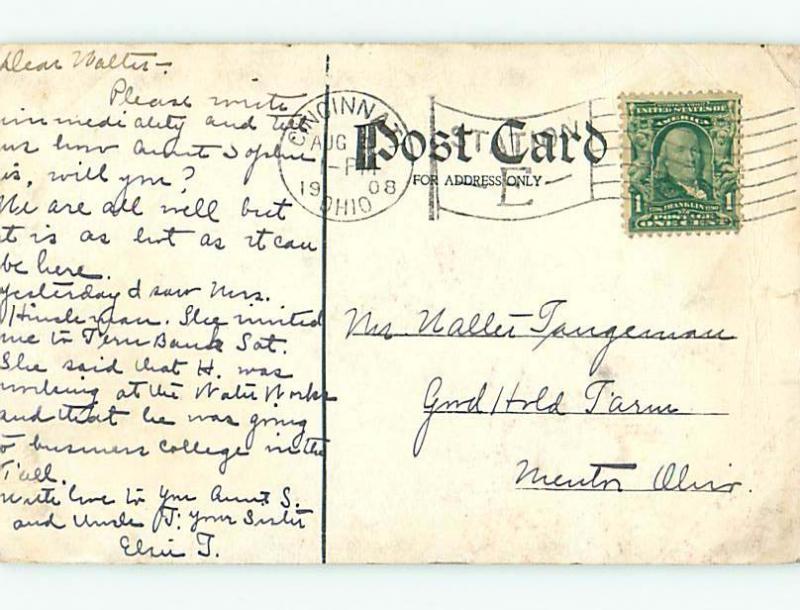 Dear Walter-
Please write
immediately and tell
us how Aunt Sophie
is, will you?
We are all well but
it is as hot as it can
be here.
Yesterday I saw Mrs.
Hinsleman. She invited
me to Fern Bank Sat.
She said that H. was
working at the Water Works
and that he was going
to business college in the
Fall.
With love to you Aunt S.
and Uncle J. Your Sister
Elsie T.
CINCINNATI
AUG
1-PM
1908
OHIO
STATION
E
Post Card
FOR ADDRESS ONLY
UNITED STATES OF
AMERICA
1 FRANKLIN 1
POSTAGE
ONE CENT
Mr Walter Tangeman
Good Hold Farm
Mentor Ohio.